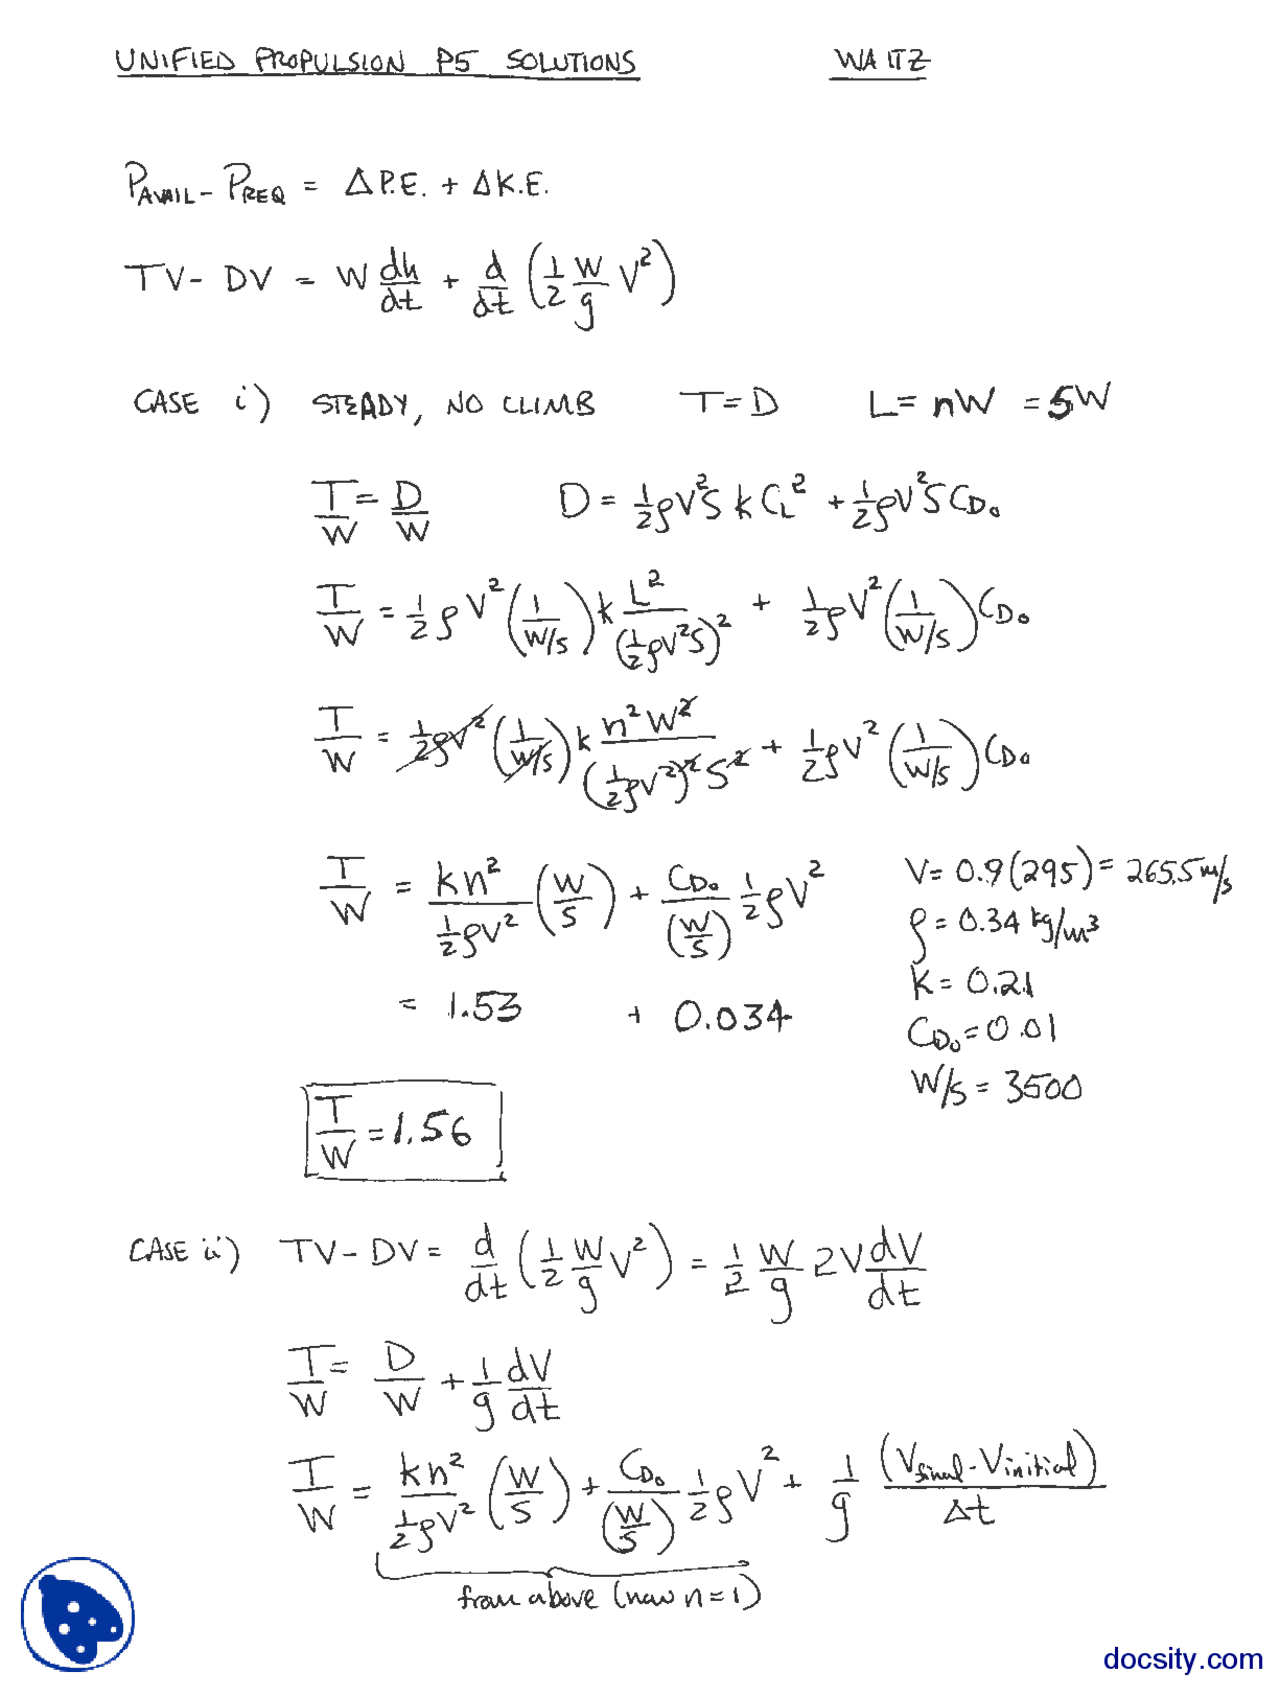 UNIFIED PROPULSION P5 SOLUTIONS WAITZ
P_AVAIL - P_REQ = ΔP.E. + ΔK.E.
TV - DV = W dh/dt + d/dt (1/2 W/g V²)
CASE i) STEADY, NO CLIMB T = D L = nW = 5W
T/W = D/W D = 1/2 ρV²S k C_L² + 1/2 ρV²S C_D₀
T/W = 1/2 ρV² (1/(W/S)) k L²/(1/2 ρV²S)² + 1/2 ρV² (1/(W/S)) C_D₀
T/W = 1/2 ρV² (1/(W/S)) k n²W²/((1/2 ρV²)² S²) + 1/2 ρV² (1/(W/S)) C_D₀
T/W = kn²/(1/2 ρV²) (W/S) + C_D₀/(W/S) 1/2 ρV²
= 1.53 + 0.034
V = 0.9(295) = 265.5 m/s
ρ = 0.34 kg/m³
k = 0.21
C_D₀ = 0.01
W/S = 3500
T/W = 1.56
CASE ii) TV - DV = d/dt (1/2 W/g V²) = 1/2 W/g 2V dV/dt
T/W = D/W + 1/g dV/dt
T/W = kn²/(1/2 ρV²) (W/S) + C_D₀/(W/S) 1/2 ρV² + 1/g (V_final - V_initial)/Δt
from above (now n = 1)
docsity.com